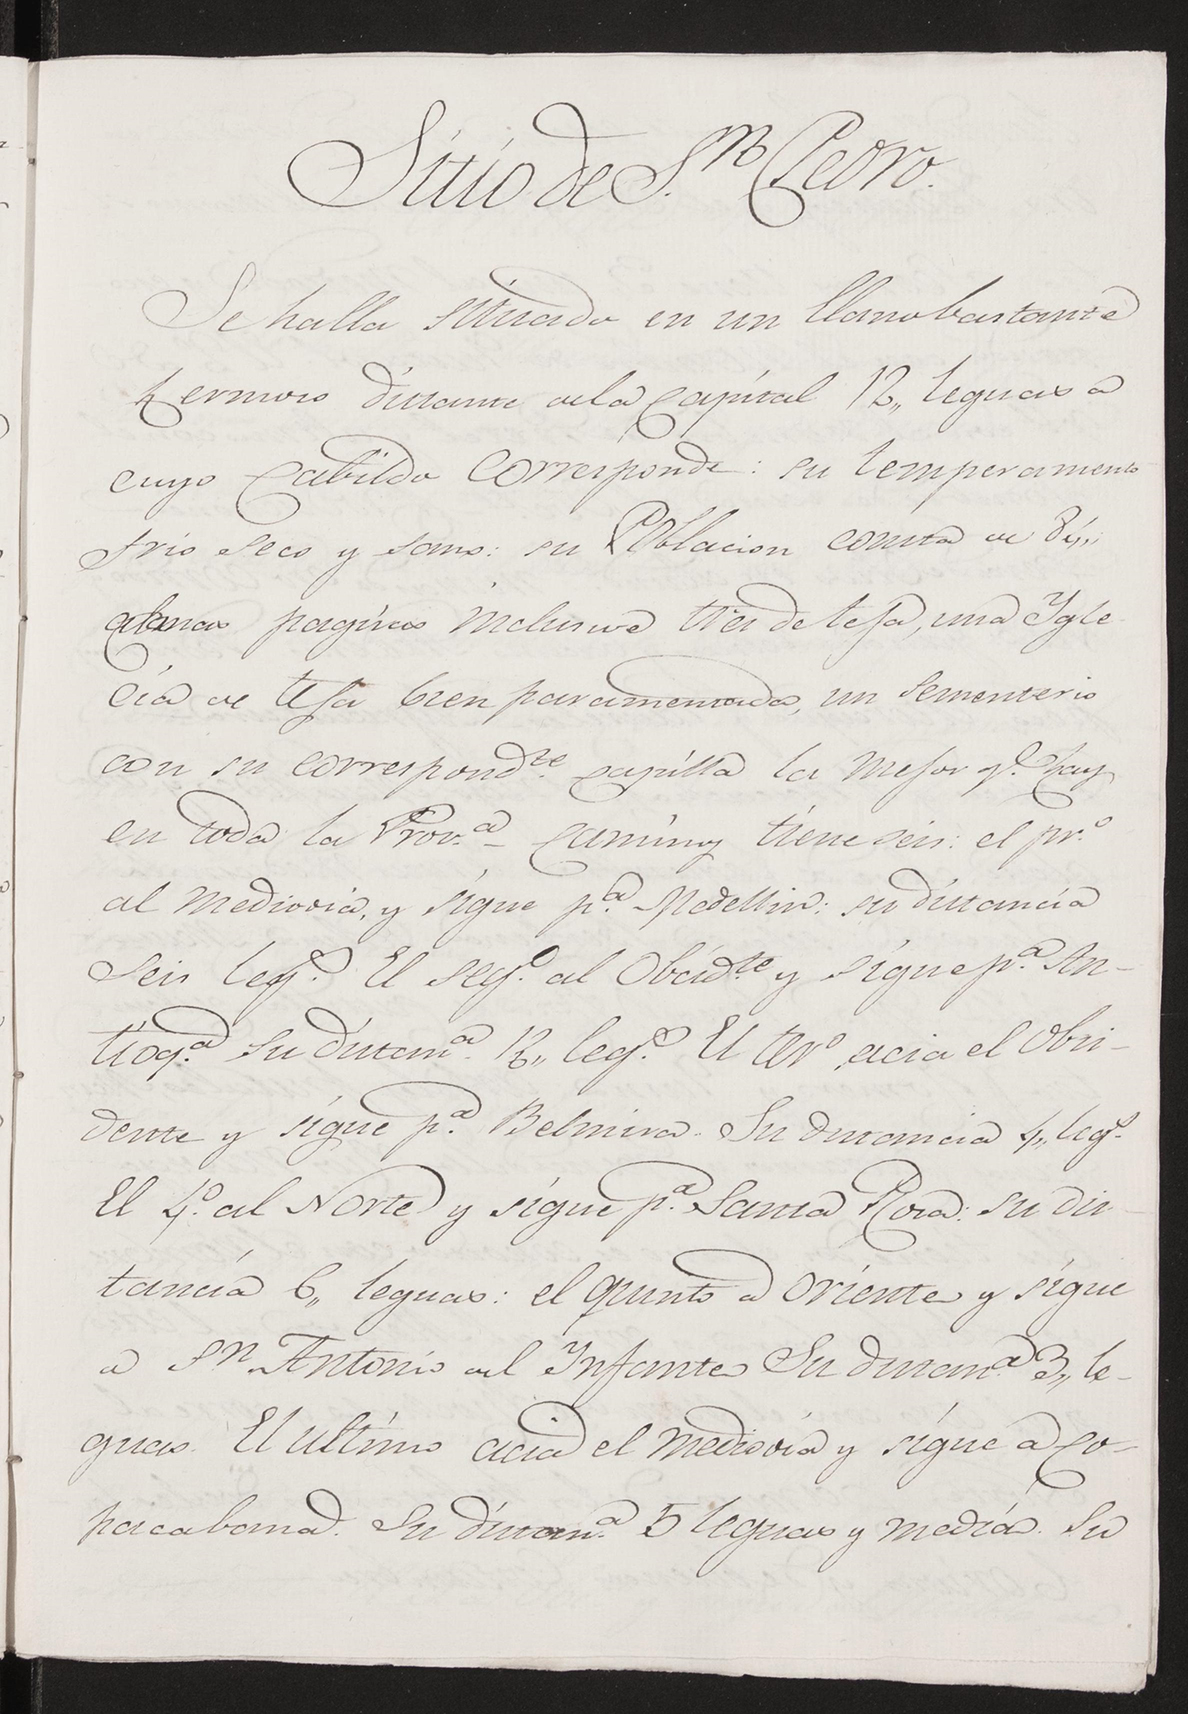 Sitio de S.n Pedro.
Se halla situado en un llano bastante
hermoso distante dela Capital 12,, leguas a
cuyo Cabildo corresponde: su temperamento
frio seco y sano: su Poblacion consta de 84,,
casas pagisas inclusive tres de tefa, una Ygle
cia de tefa bien paramentada, un sementerio
con su correspond.te capilla la mefor q.e hay
en toda la Prov.a Caminos tiene seis: el pr.o
al mediodia, y sigue p.a Medellin: su distancia
seis leg.s El seg.o al Obcid.te y sigue p.a An-
tioq.a su distan.a 12,, leg.s El ter.o acia el Obsi-
dente y sigue p.a Belmira. Su distancia 4,, leg.s
El 4.o al Norte y sigue p.a Santa Rosa: su dis-
tancia 6,, leguas: el quinto a Oriente y sigue
a S.n Antonio del Ynfante Su distan.a 3,, le-
guas. El ultimo acia el mediodia y sigue a Co-
pacabana. Su distan.a 5 leguas y media. Su